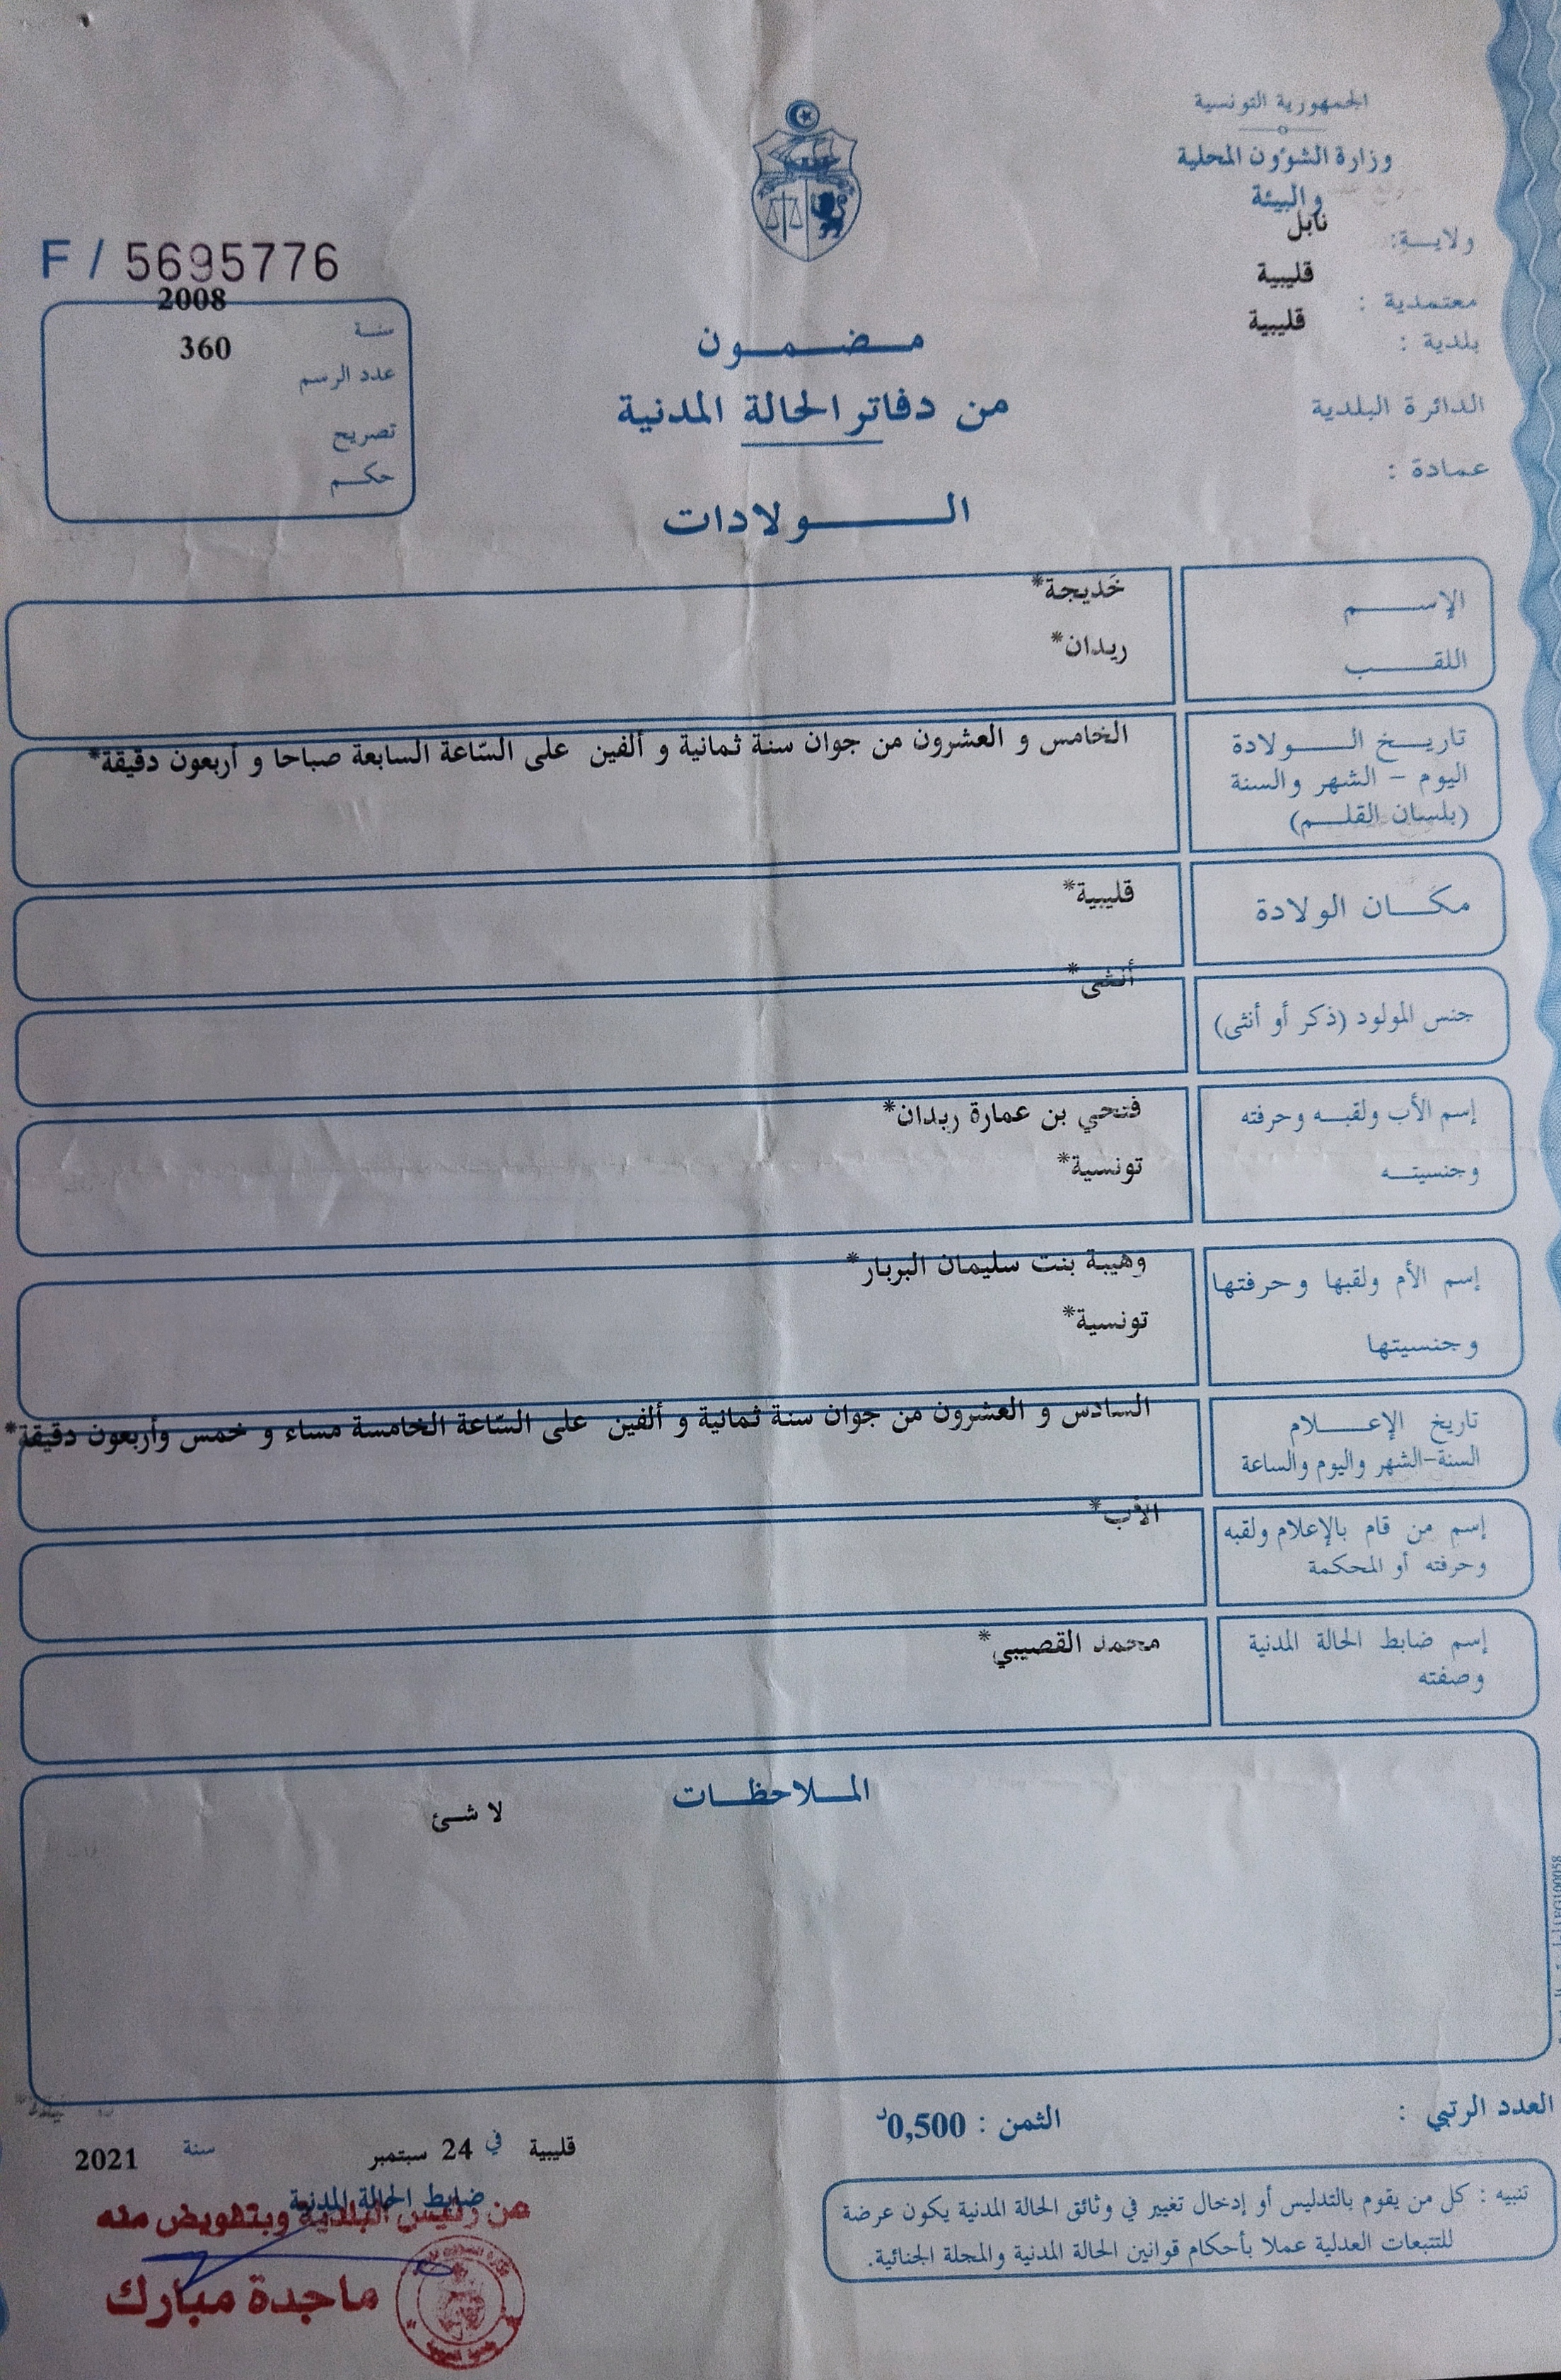 الجمهورية التونسية
وزارة الشؤون المحلية
والبيئة
ولايـــة: نابل
معتمدية : قليبية
بلدية : قليبية
الدائرة البلدية
عمادة :
F / 5695776
سنــة 2008
عدد الرسم 360
تصريح
حكــم
مــضــمــون
من دفاتر الحالة المدنية
الــــولادات
الإســــم خَديجة*
اللقــــب ريدان*
تاريــخ الــــولادة
اليوم - الشهر والسنة
(بلسان القلــم)
الخامس و العشرون من جوان سنة ثمانية و ألفين على السّاعة السابعة صباحا و أربعون دقيقة*
مكــان الولادة قليبية*
جنس المولود (ذكر أو أنثى) أنثى*
إسم الأب ولقبــه وحرفته فتحي بن عمارة ريدان*
وجنسيتــه تونسية*
إسم الأم ولقبها وحرفتها وهيبة بنت سليمان البربار*
وجنسيتها تونسية*
تاريخ الإعــــلام
السنة-الشهر واليوم والساعة
السادس و العشرون من جوان سنة ثمانية و ألفين على السّاعة الخامسة مساء و خمس وأربعون دقيقة*
إسم من قام بالإعلام ولقبه
وحرفته أو المحكمة
الأب*
إسم ضابط الحالة المدنية
وصفته
محمد القصيبي*
الملاحظــات
لا شئ
العدد الرتبي :
الثمن : 0,500د
قليبية في 24 سبتمبر سنة 2021
ضابط الحالة المدنية
من رئيس البلدية وبتفويض منه
ماجدة مبارك
تنبيه : كل من يقوم بالتدليس أو إدخال تغيير في وثائق الحالة المدنية يكون عرضة
للتتبعات العدلية عملا بأحكام قوانين الحالة المدنية والمجلة الجنائية.